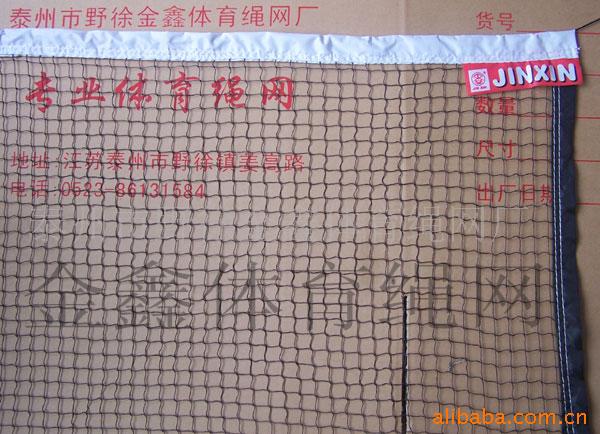 泰州市野徐金鑫体育绳网厂
货号
JINXIN
专业体育绳网
数量
尺寸
地址:江苏泰州市野徐镇姜高路
电话:0523-86131584
出厂日期
泰州市野徐金鑫体育绳网厂
金鑫体育绳网
alibaba.com.cn